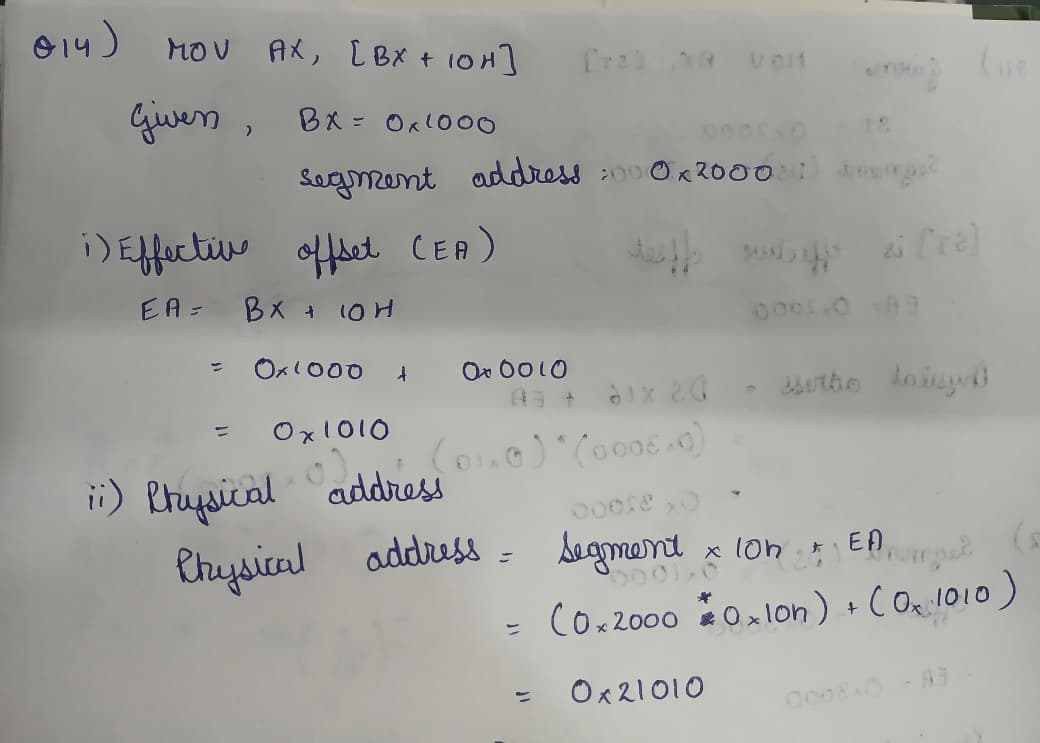 Q14) MOV AX, [BX + 10H]
Given, BX = 0x1000
segment address : 0x2000
i) Effective offset (EA)
EA = BX + 10H
= 0x1000 + 0x0010
= 0x1010
ii) Physical address
Physical address = segment x 10h + EA
= (0x2000 * 0x10h) + (0x1010)
= 0x21010